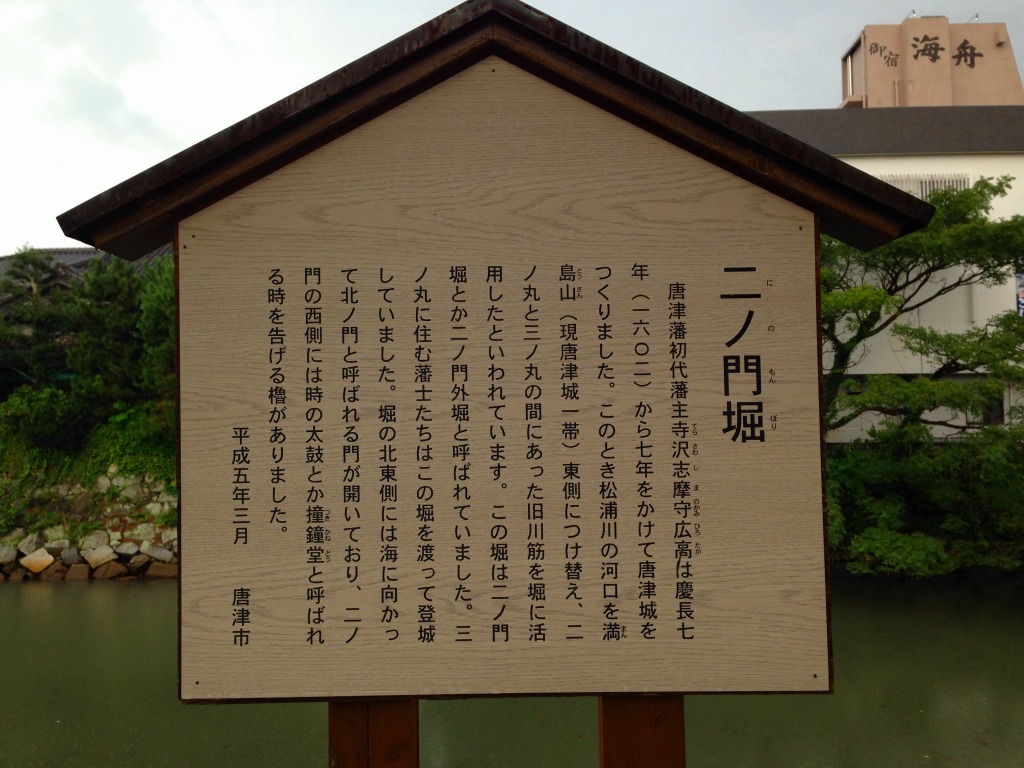 二ノ門堀
にのもんぼり
唐津藩初代藩主寺沢志摩守広高は慶長七
てらさわしまのかみひろたか
年（一六〇二）から七年をかけて唐津城を
つくりました。このとき松浦川の河口を満
まん
島山（現唐津城一帯）東側につけ替え、二
とうさん
ノ丸と三ノ丸の間にあった旧川筋を堀に活
用したといわれています。この堀は二ノ門
堀とか二ノ門外堀と呼ばれていました。三
ノ丸に住む藩士たちはこの堀を渡って登城
していました。堀の北東側には海に向かっ
て北ノ門と呼ばれる門が開いており、二ノ
門の西側には時の太鼓とか撞鐘堂と呼ばれ
つきかねどう
る時を告げる櫓がありました。
平成五年三月　唐津市
御宿 海舟